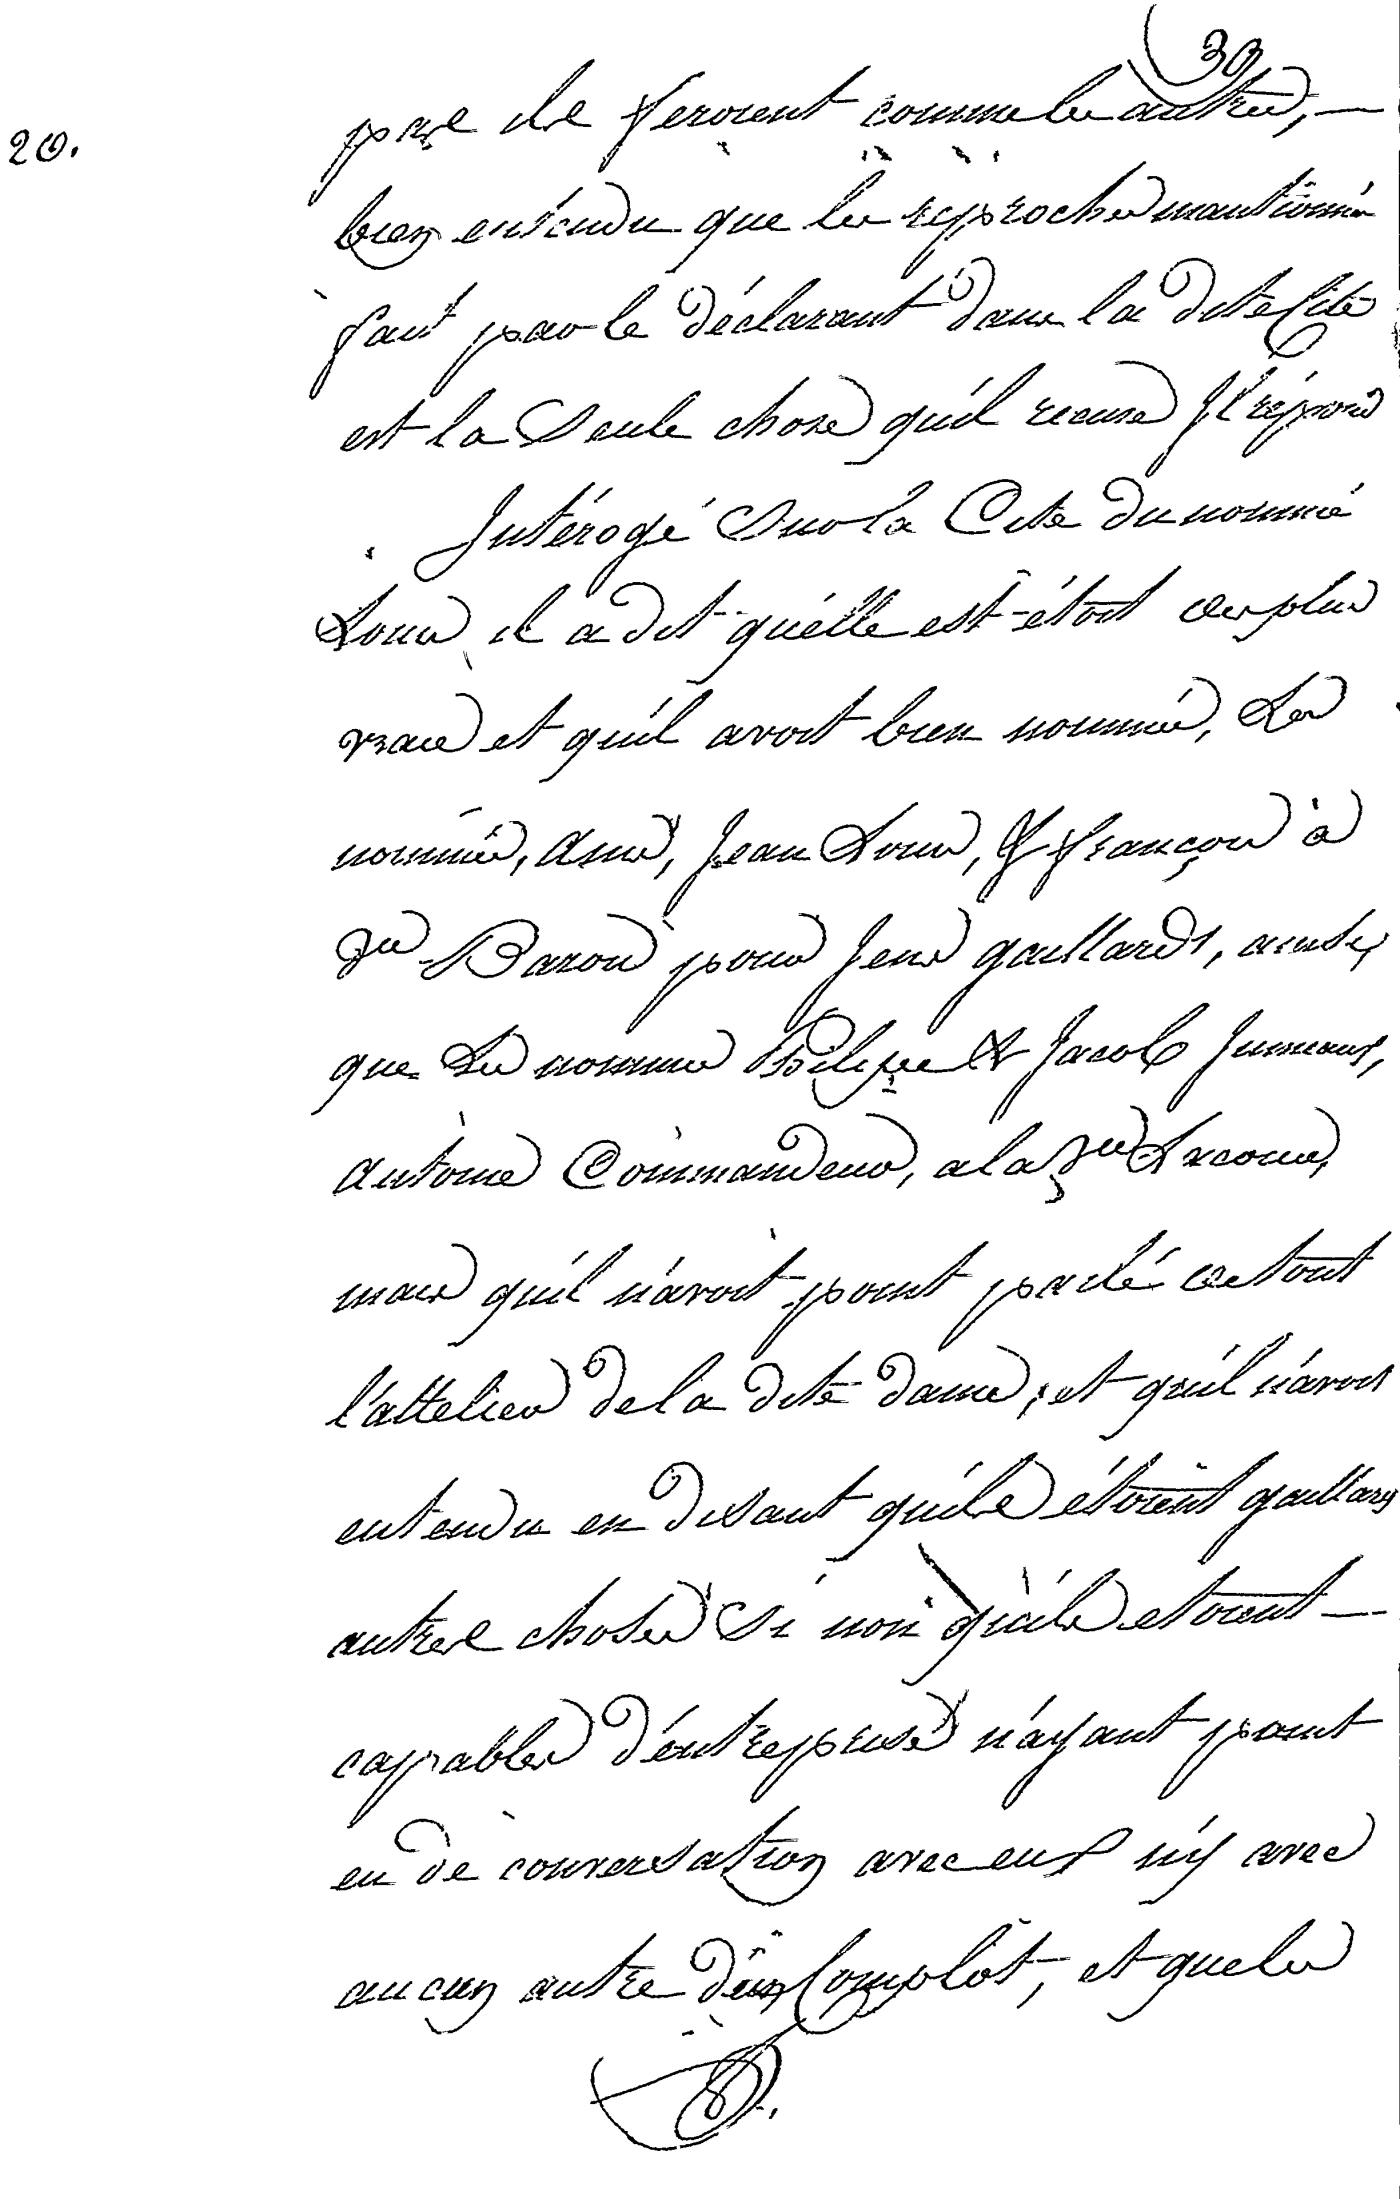 30
20.
pas ils feroient comme les autres, —
bien entendu que les reproches mantionnés
fait par le déclarant dans la dite Cite
est la Seule chose qu'il recuse Il répond
Intérogé Sur la Cite du nommé
Louis il a dit qu'elle est étoit des plus
vraies et qu'il avoit bien nommés, Les
nommés, Jean Louis, & François à
Baron pour Jens gaillards, ainsi
que Les nommés Philipe & Jacob Jumeaux,
Antoine Commandeur, a la
mais qu'il n'avoit point parlé de tout
l'attelier de la dite dame, et qu'il n'avoit
entendu en disant qu'ils étoient gaillards
autres choses Si non qu'ils etoient —
capables d'entreprise n'ayant point
eu de conversation avec eux n'y avec
aucun autre d'un Complôt, et que les